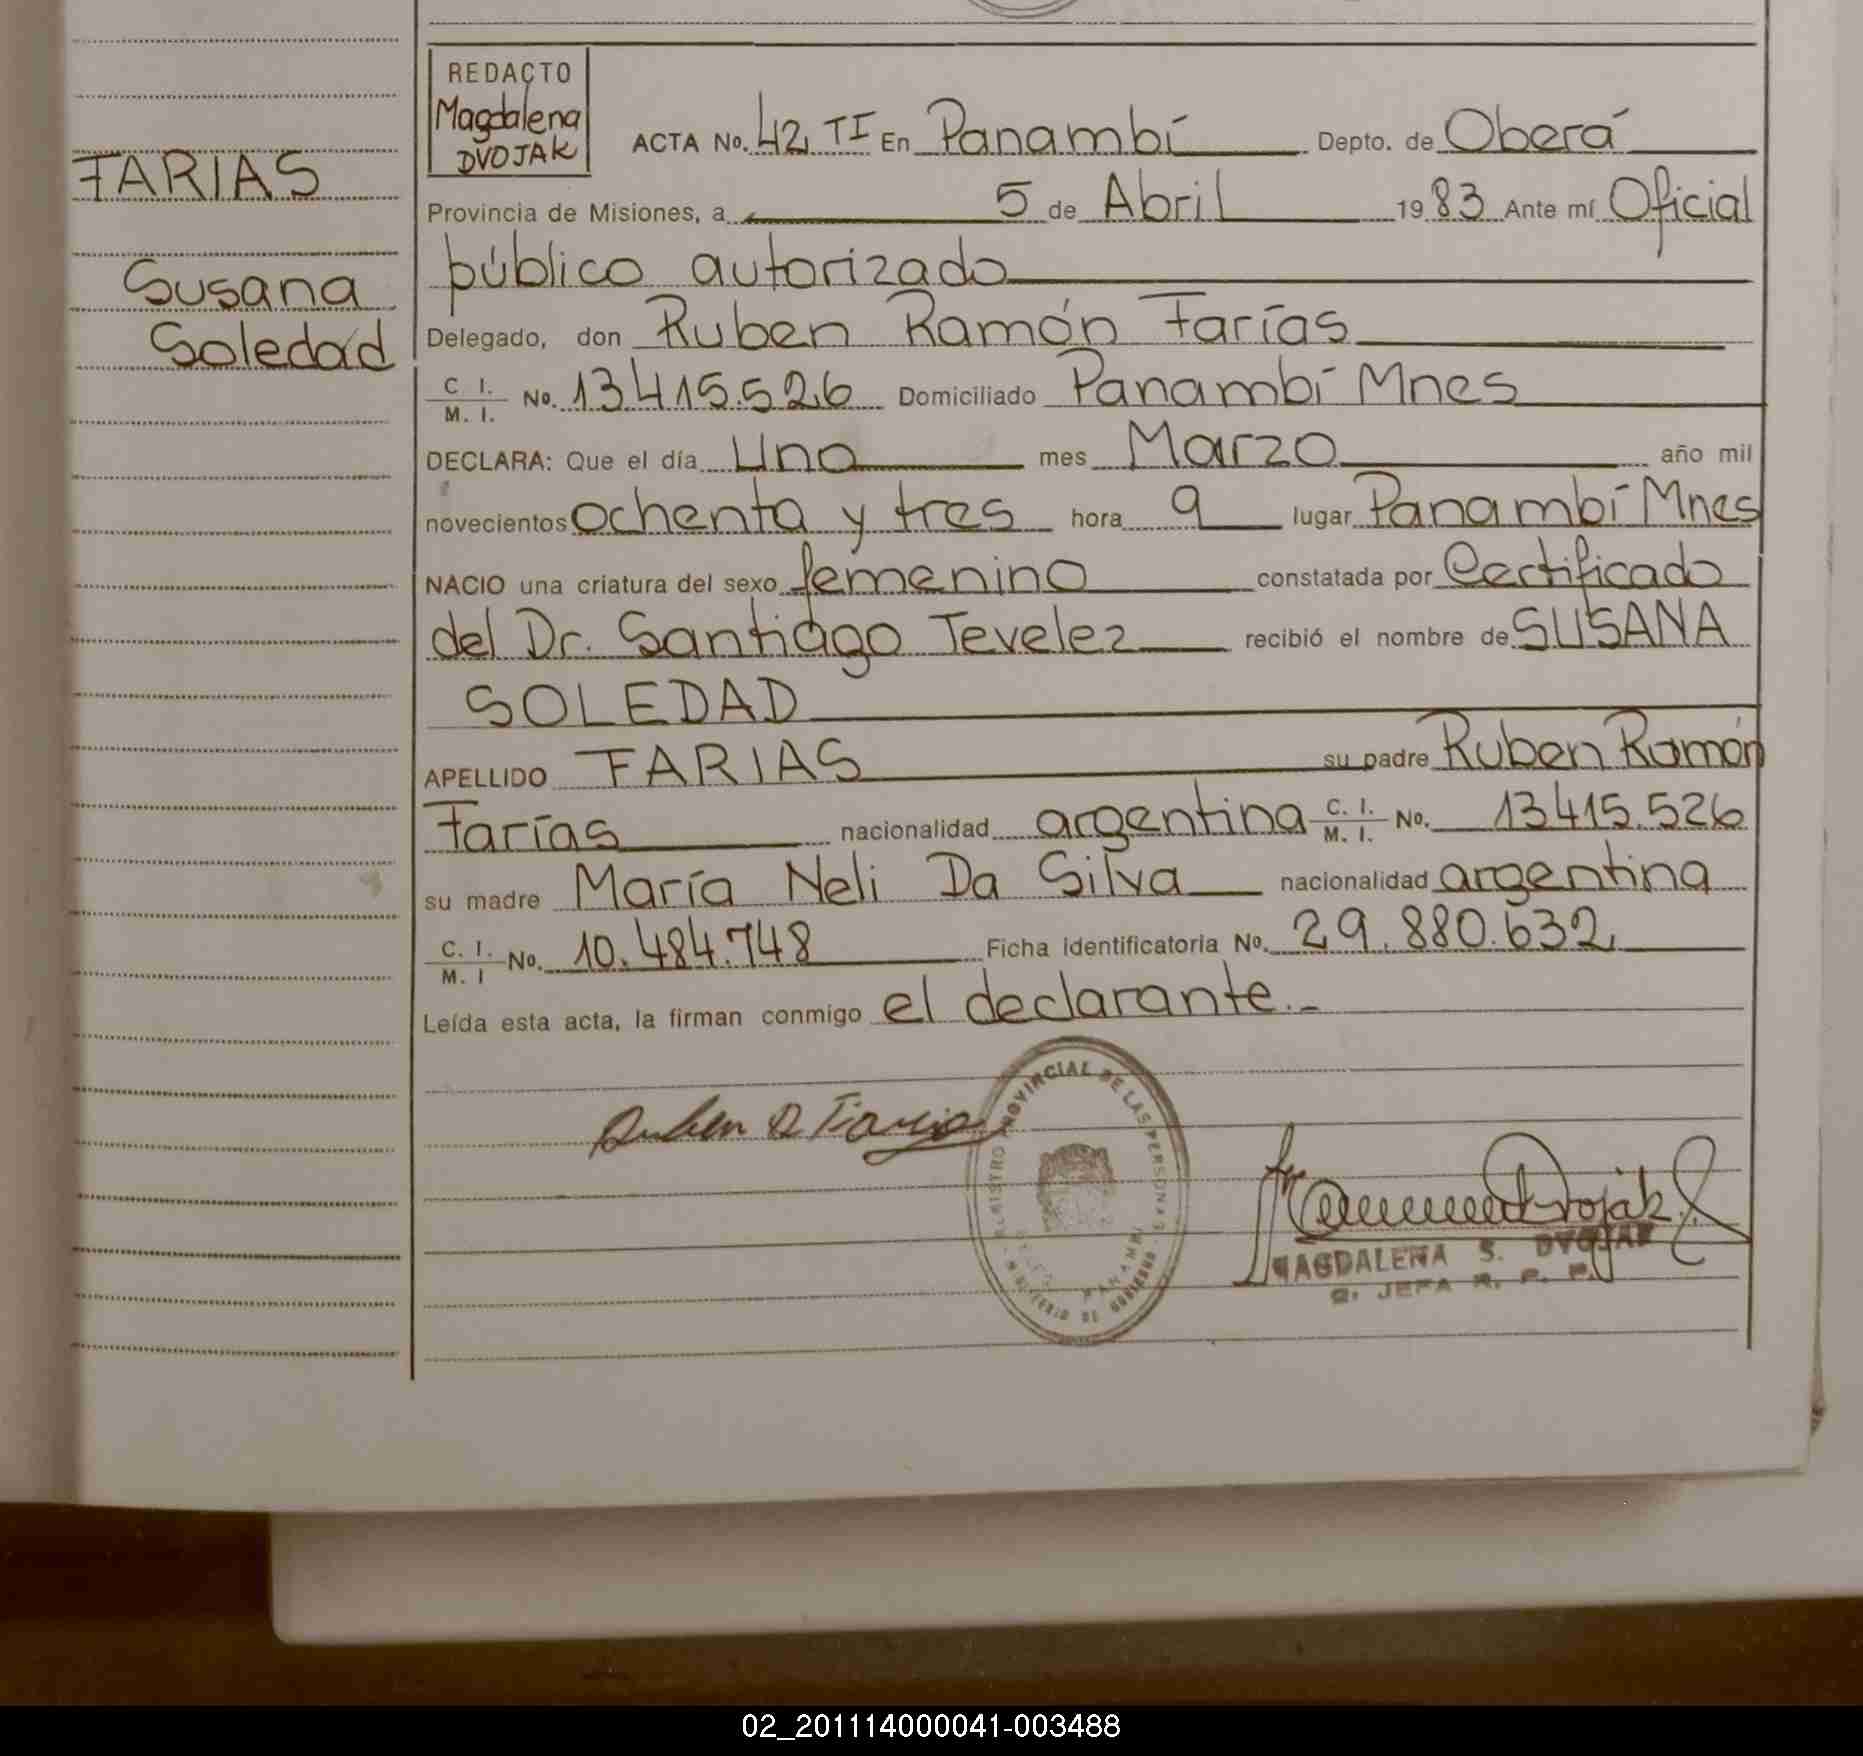 REDACTO
Magdalena
DVOJAK
ACTA No. 42 TI En Panambí Depto. de Oberá
FARIAS
Provincia de Misiones, a 5 de Abril 1983 Ante mí Oficial
público autorizado
Susana
Soledad
Delegado, don Ruben Ramón Farías
C. I. / M. I. No. 13.415.526 Domiciliado Panambí Mnes
DECLARA: Que el día Uno mes Marzo año mil
novecientos ochenta y tres hora 9 lugar Panambí Mnes
NACIO una criatura del sexo femenino constatada por Certificado
del Dr. Santiago Tevelez recibió el nombre de SUSANA
SOLEDAD
APELLIDO FARIAS su padre Ruben Ramón
Farías nacionalidad argentina C. I. / M. I. No. 13.415.526
su madre María Neli Da Silva nacionalidad argentina
C. I. / M. I No. 10.484.748 Ficha identificatoria No. 29.880.632
Leída esta acta, la firman conmigo el declarante.-
Ruben R Farias
REGISTRO PROVINCIAL DE LAS PERSONAS
PANAMBI
MINISTERIO DE GOBIERNO
Dvojak
MAGDALENA S. DVOJAK
JEFA R. P. P.
02_201114000041-003488